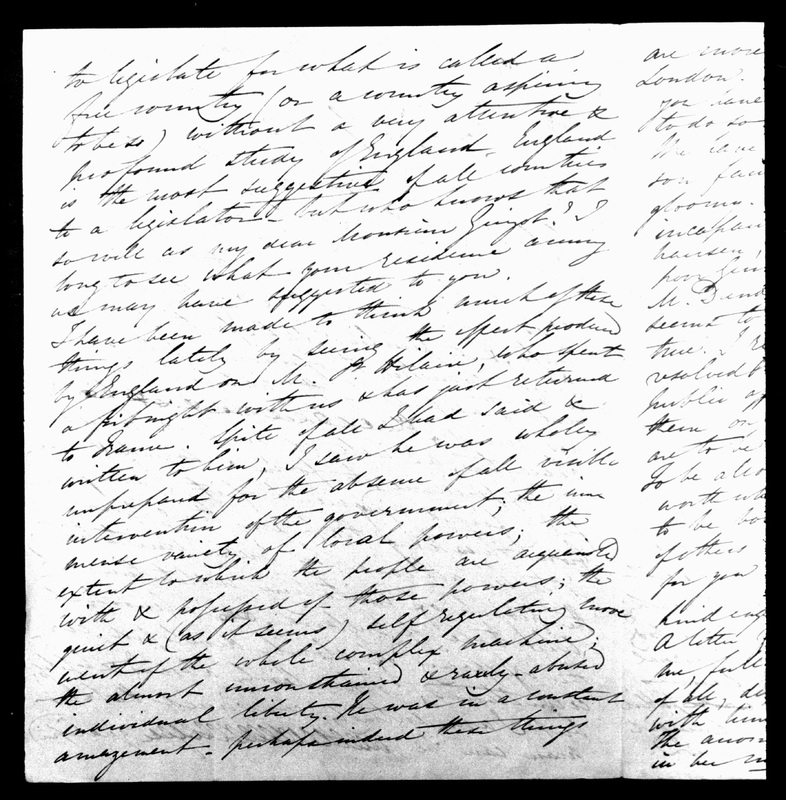 to legislate for what is called a
free country (or a country aspiring
to be so) without a very attentive &
profound study of England. England
is the most suggestive of all countries
to a legislator – but who knows that
so well as my dear Monsieur Guizot? I
long to see what your residence among
us may have suggested to you.
I have been made to think much of these
things lately by seeing the effect produced
by England on M. St Hilaire, who spent
a fortnight with us & has just returned
to France. Spite of all I had said &
written to him, I saw he was wholly
unprepared for the absence of all visible
intervention of the government; the im
mense variety of local powers; the
extent to which the people are acquainted
with & possessed of those powers; the
quiet & (as it seems) self regulating move
ment of the whole complex machine;
the almost unconstrained & rarely-abused
individual liberty. He was in a constant
amazement – perhaps indeed these things
are more
London.
you have
to do so
We have
son
gloomy.
poor
M.
seems to
true. I
resolved
public
them on
are to
To be
worth
to be
of others
for you
kind
A letter
me, full
of all,
with
The
in her